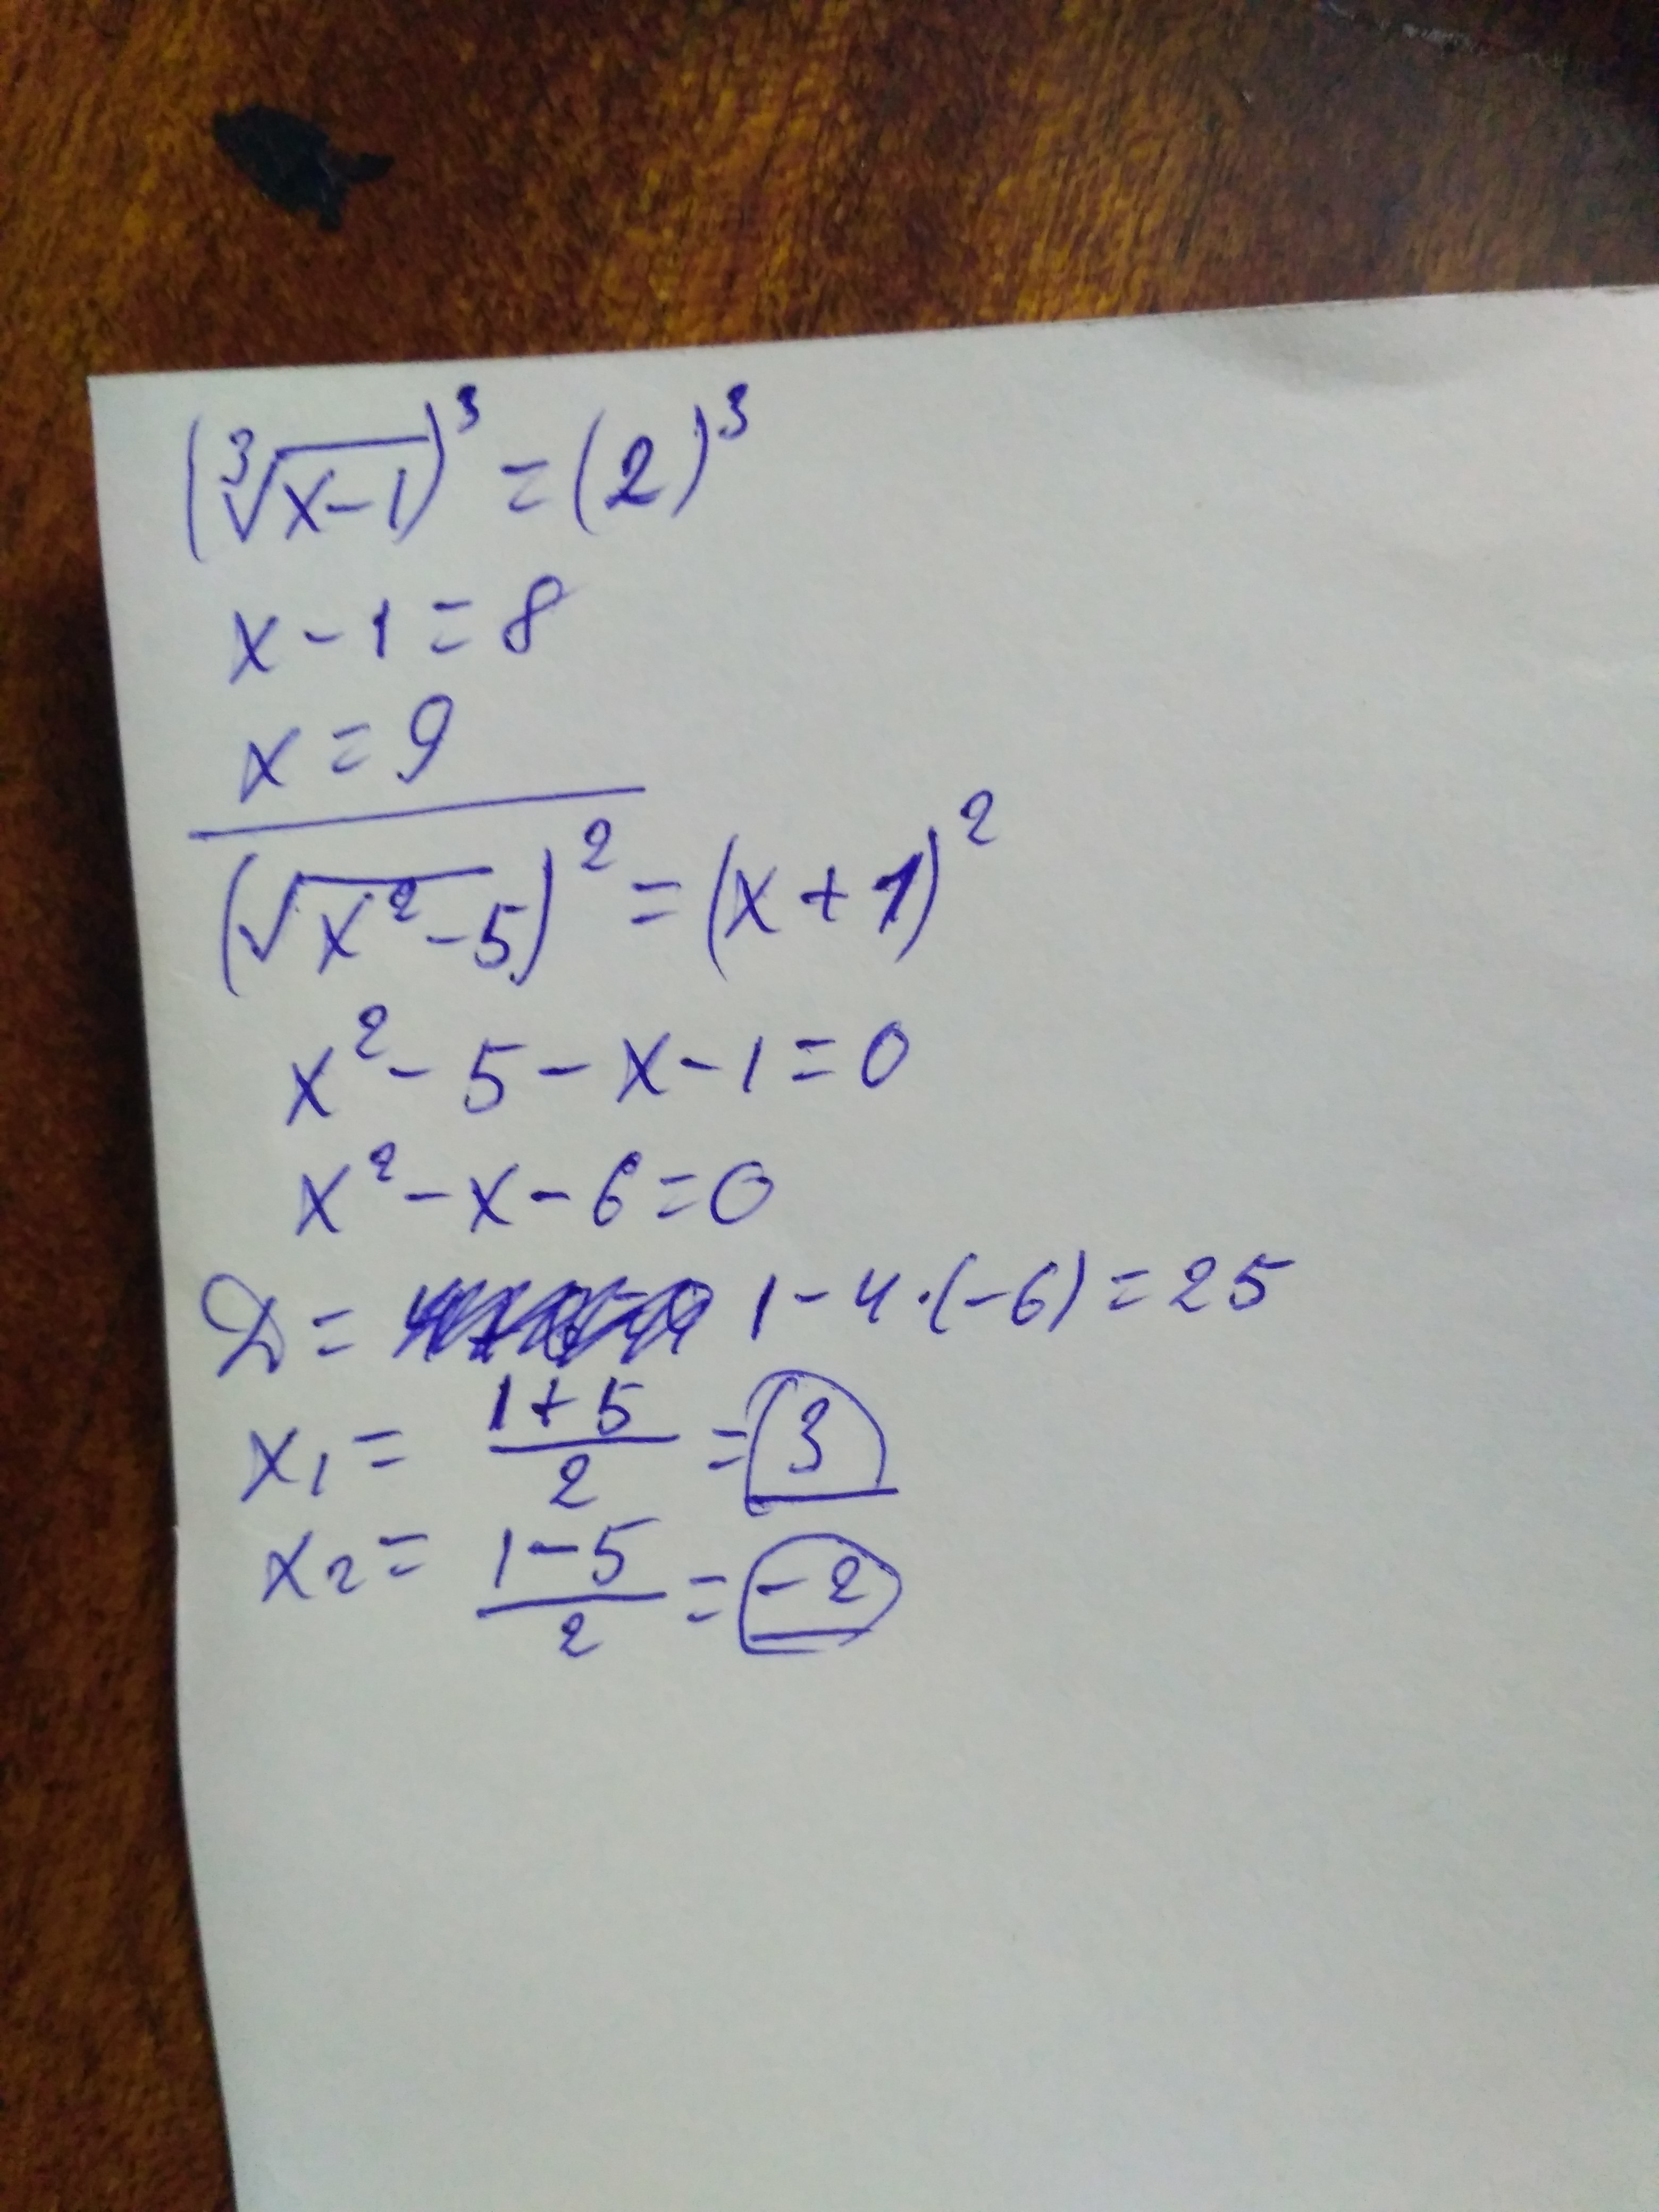 (∛(x-1))³ = (2)³
x - 1 = 8
x = 9
(√(x²-5))² = (x + 1)²
x² - 5 - x - 1 = 0
x² - x - 6 = 0
D = 1 - 4 · (-6) = 25
x₁ = (1 + 5)/2 = 3
x₂ = (1 - 5)/2 = -2